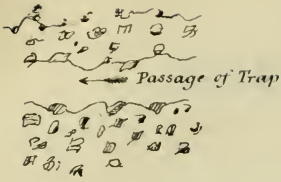 Passage of Trap